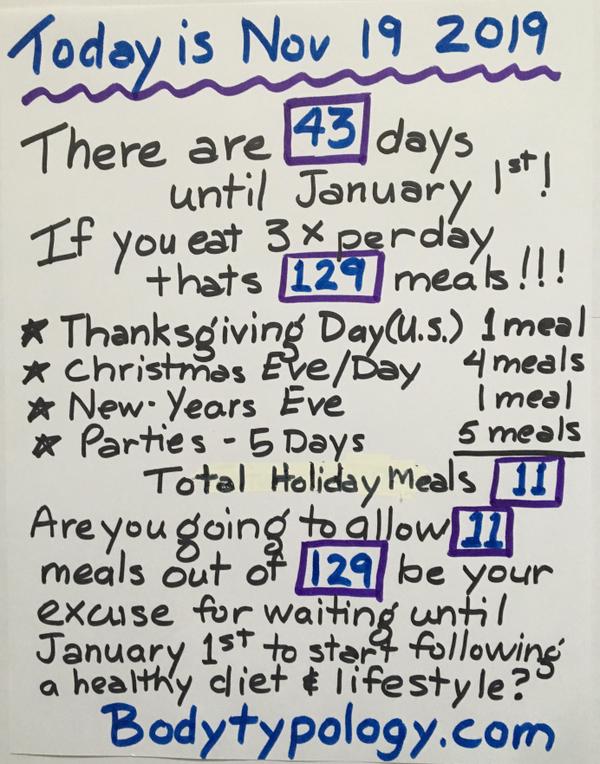 Today is Nov 19 2019
There are 43 days
until January 1st!
If you eat 3 x per day
thats 129 meals!!!
★ Thanksgiving Day (U.S.) 1 meal
★ Christmas Eve/Day 4 meals
★ New-Years Eve 1 meal
★ Parties - 5 Days 5 meals
Total Holiday Meals 11
Are you going to allow 11
meals out of 129 be your
excuse for waiting until
January 1st to start following
a healthy diet & lifestyle?
Bodytypology.com